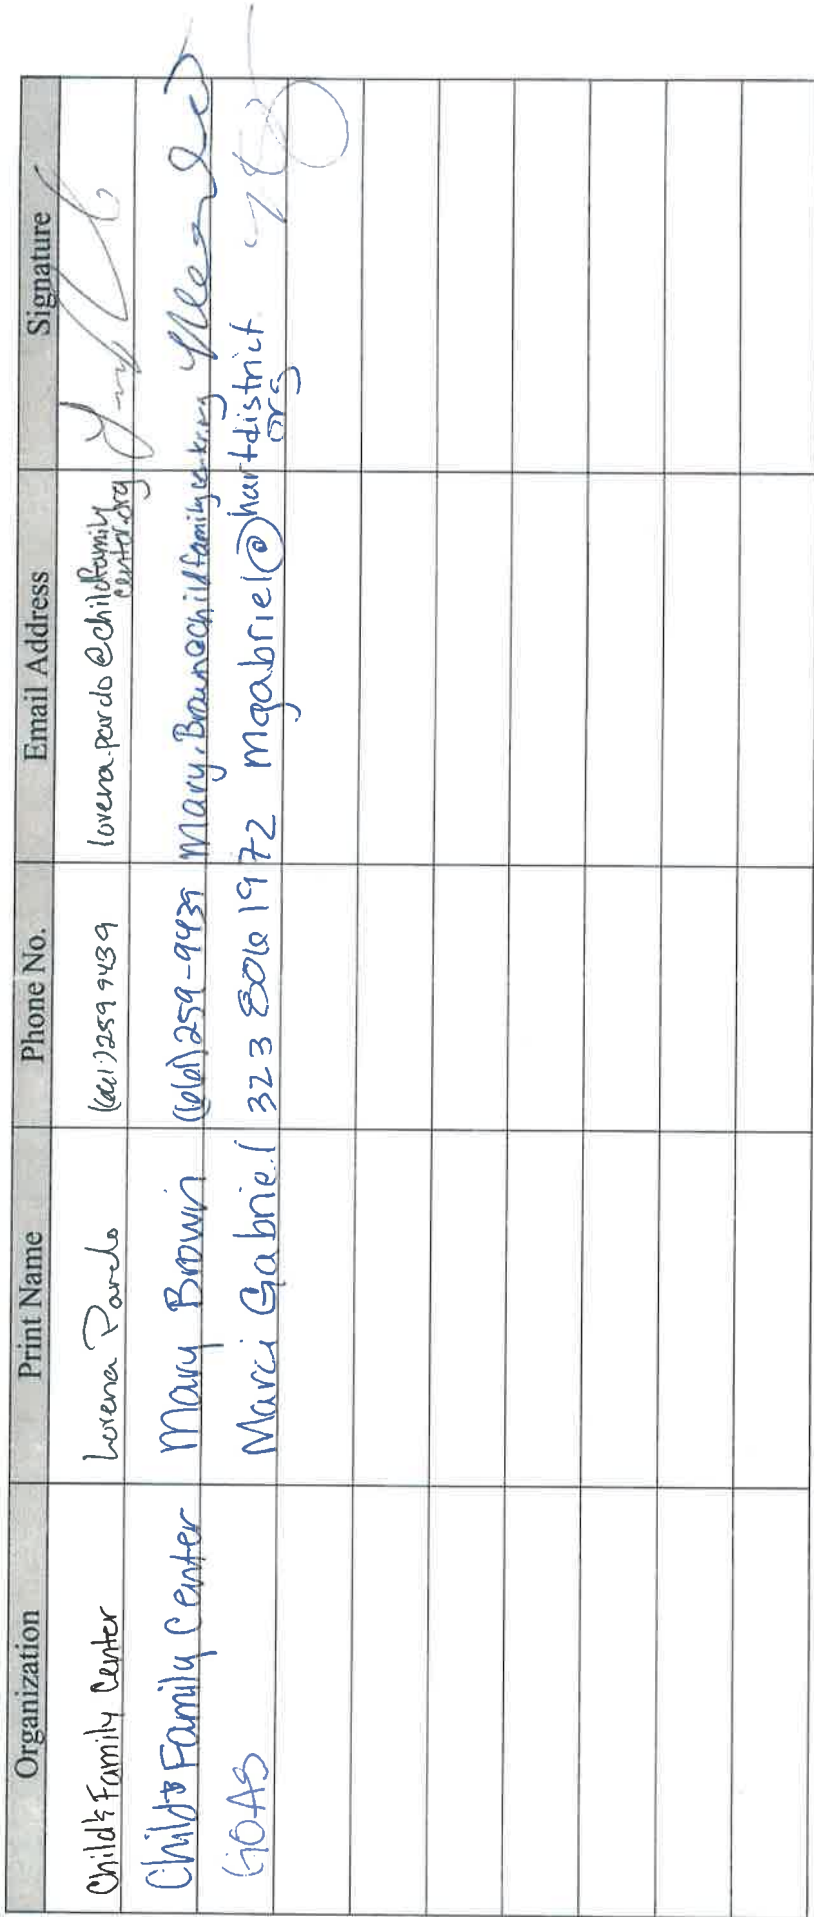 Organization Print Name Phone No. Email Address Signature
Child & Family Center Lorena Pardo (661) 259 9439 lorena.pardo@childfamily
center.org
Child & Family Center Mary Brown (661) 259-9439 Mary.Brown@childfamilycenter.org
GOAS Marci Gabriel 323 806 1972 mgabriel@hartdistrict
org